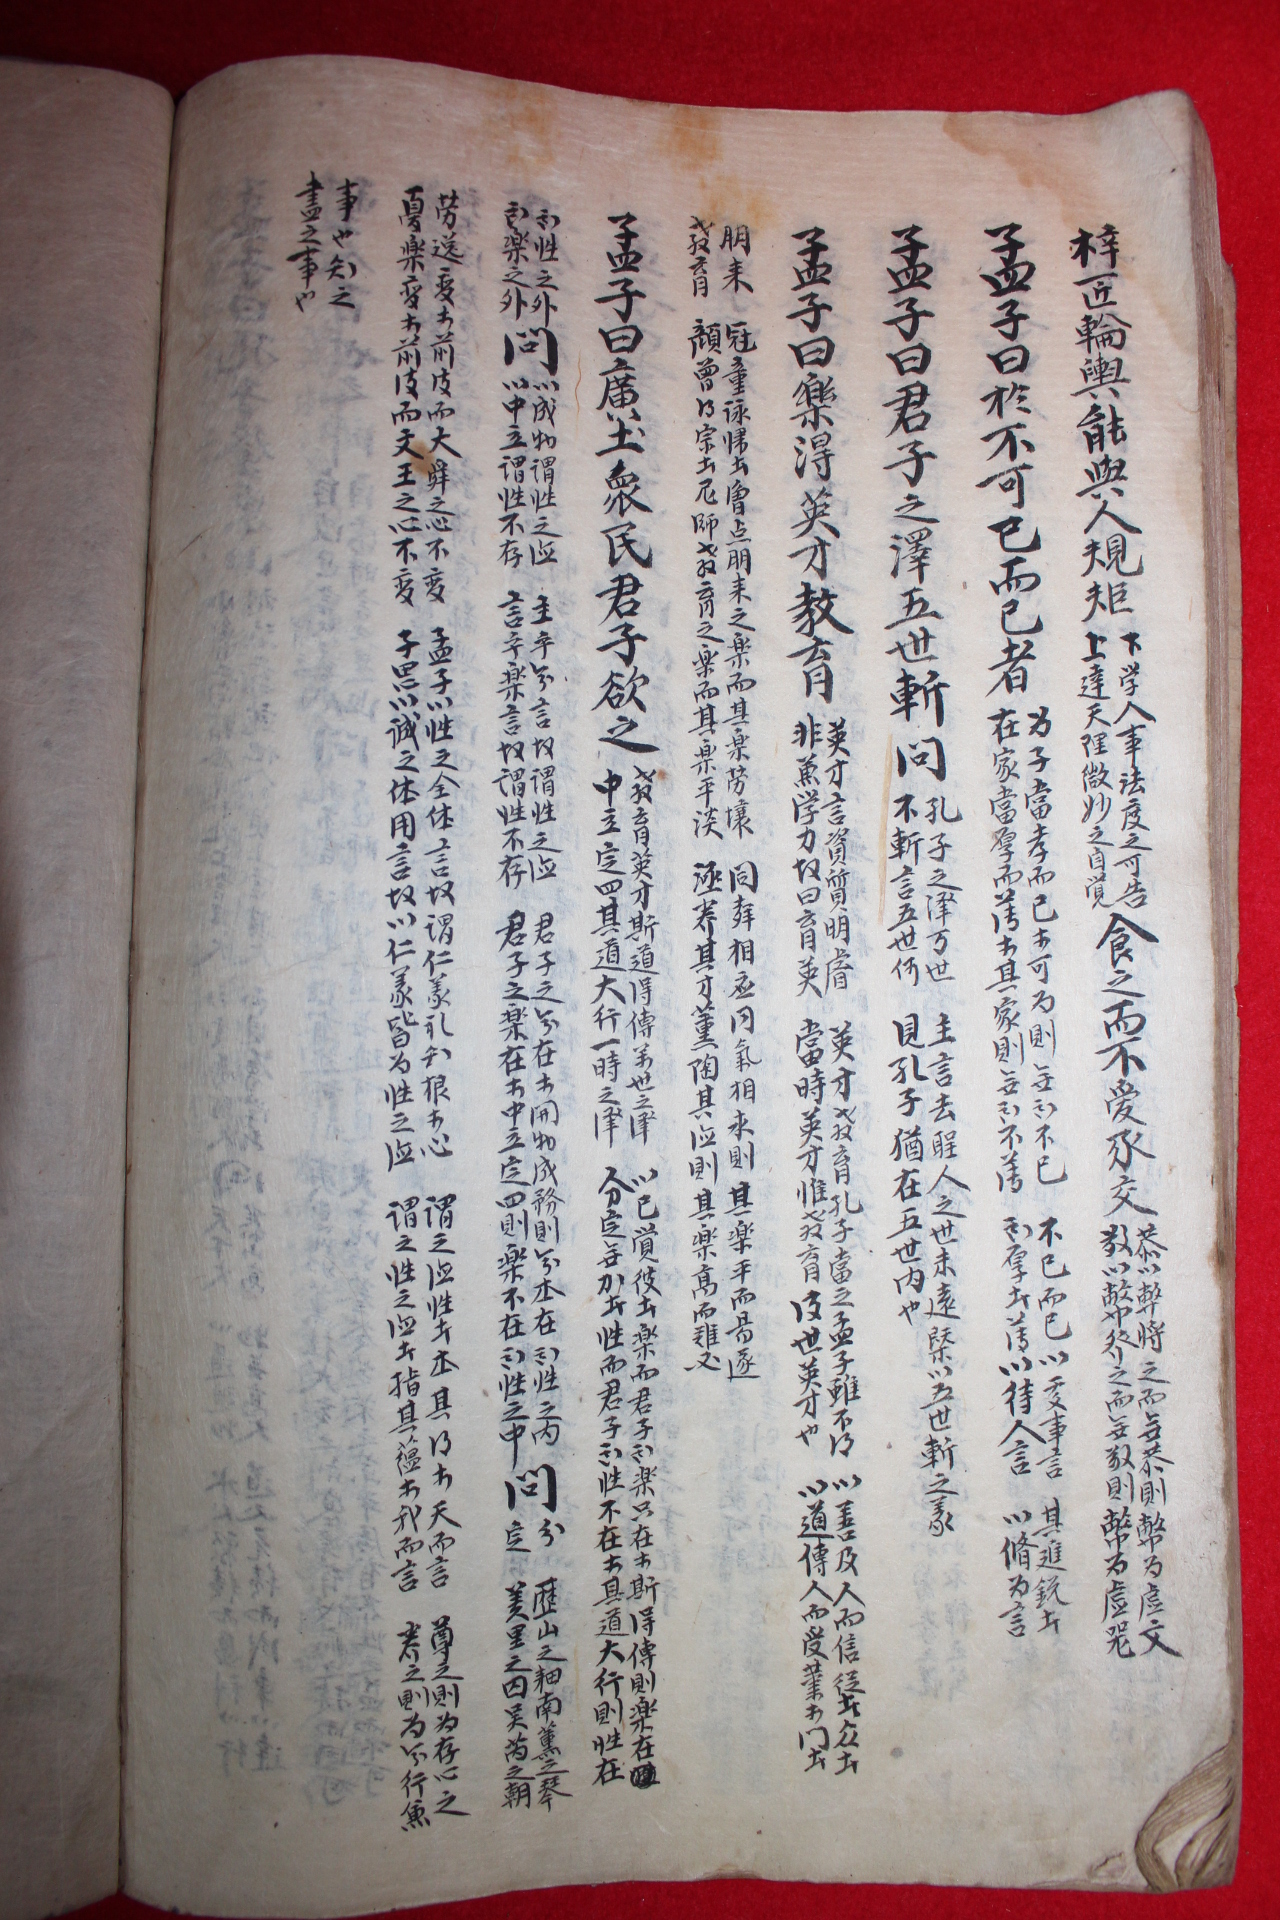 梓匠輪輿能與人規矩 下学人事法度之可告 上達天理微妙之自覚 食之而不愛豕交 恭以幣將之而無恭則幣為虛文 敬以幣行之而無敬則幣為虛器
孟子曰於不可已而已者 为子當孝而已於可为則無所不已 在家當厚而薄於其家則無所不薄 不已而已以處事言 所厚者薄以待人言 其進銳者 以脩为言
孟子曰君子之澤五世斬 問 孔子之澤万世 不斬言五世何 主言去聖人之世未遠 槩以五世斬之義 見孔子猶在五世內也
孟子曰樂得英才教育 英才言資質明睿 非兼学力故曰育英 英才教育孔子當之孟子雖不得 當時英才惟教育後世英才也 以善及人而信從者众者 以道傳人而受業於門者
朋来 教育 冠童詠归者曾点朋来之楽而其楽劳壤 顏曾得宗者尼師教育之楽而其楽平淡 同聲相应同氣相求則其楽平而易遂 涵养其才薰陶其德則其楽高而難必
孟子曰廣土衆民君子欲之 教育英才斯道得傳萬世之澤 中立定四其道大行一時之澤 以已覚彼者楽而君子所楽只在於斯得傳則楽在 分定無加者性而君子所性不在於其道大行則性在
所性之外 所楽之外 問 以成物謂性之德 以中立謂性不存 主辛分言故謂性之德 言辛楽言故謂性不存 君子之分在於開物成務則分本在所性之內 君子之楽在於中立定四則楽不在所性之中 問 分 定 歷山之耕南薰之琴 羑里之囚吴芮之朝
劳逸变於前後而大舜之心不变 憂楽变於前後而文王之心不变 孟子以性之全体言故謂仁義礼知根於心 子思以誠之体用言故以仁義皆为性之德 謂之德性者本其得於天而言 謂之性之德者指其蘊於我而言 尊之則为存心之 养之則为分行兼
事也知之
盡之事也